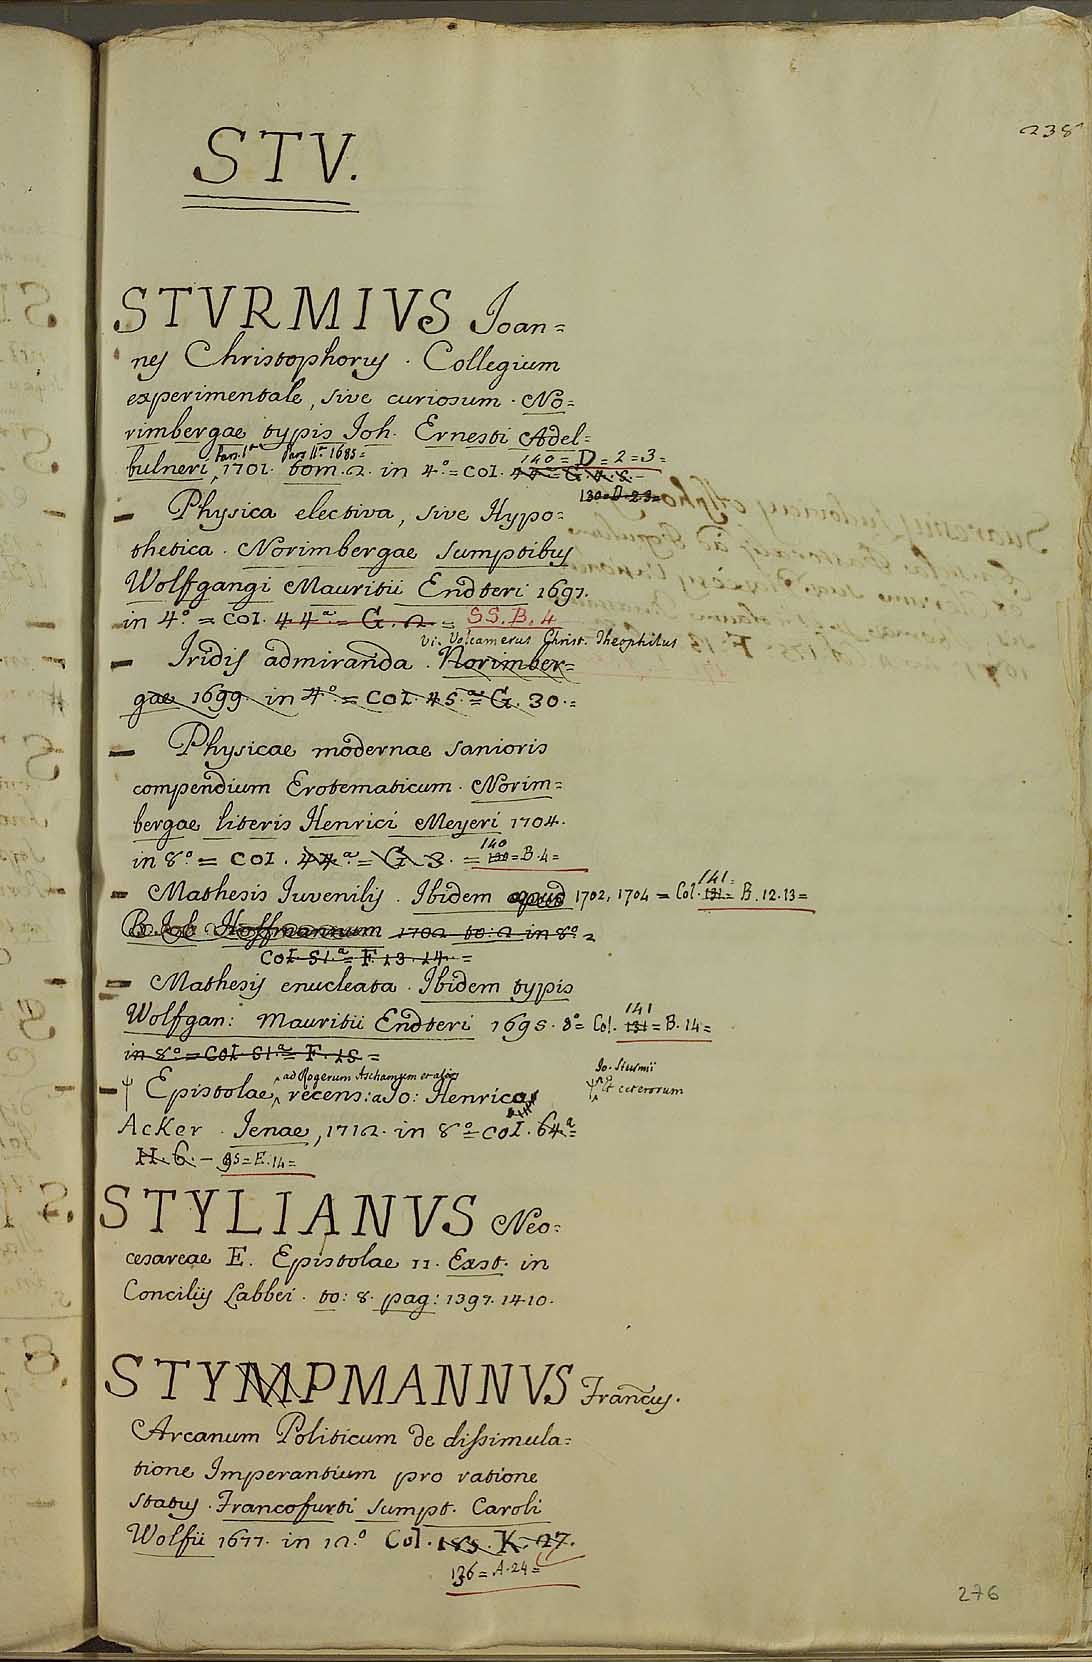 238
STV.
STVRMIVS Joan=
nes Christophorus. Collegium
experimentale, sive curiosum. No=
rimbergae typis Joh. Ernesti Adel=
Pars IIa 1685=
140=D=2=3=
bulneri, 1701. tom. 2. in 4.o = Col. 44a= G. 4. 5.
130=D.2.3=
— Physica electiva, sive Hypo=
thetica. Norimbergae sumptibus
Wolfgangi Mauritii Endteri 1697.
in 4.o = Col. 44a = G. 2. = SS. B. 4
vi. Volcamerus Christ. Theophilus
— Iridis admiranda. Norimber=
gae 1699. in 4.o = Col. 45.a = G. 30.=
— Physicae modernae sanioris
compendium Erotematicum. Norim=
bergae literis Henrici Meyeri 1704.
140
in 8.o = Col. 44.a = G. 3. = 130=B.4=
141
— Mathesis Iuvenilis. Ibidem apud 1702, 1704 = Col. 131= B. 12.13=
D. Joh. Hoffmannum 1702 to: 2 in 8.o =
Col. 51.a = F. 13. 14. =
— Mathesis enucleata. Ibidem typis
141
Wolfgan: Mauritii Endteri 1695. 8o= Col. 131 = B. 14=
in 8.o = Col. 51.a = F. 15 =
ad Rogerum Aschamum et alios
Jo. Sturmii
et ceterorum
— Epistolae recens: a Jo: Henrico
Acker. Jenae, 1712. in 8.o = Col. 64.a=
H. 6. — 95=E.14=
STYLIANVS Neo=
cesareae E. Epistolae 11. Exst. in
Conciliis Labbei. to: 8. pag: 1397. 1410.
STYMPMANNVS Francus.
Arcanum Politicum de dissimula=
tione Imperantium pro ratione
status. Francofurti sumpt. Caroli
Wolfii 1677. in 12.o Col. 185. K. 27.
136=A.24=
276